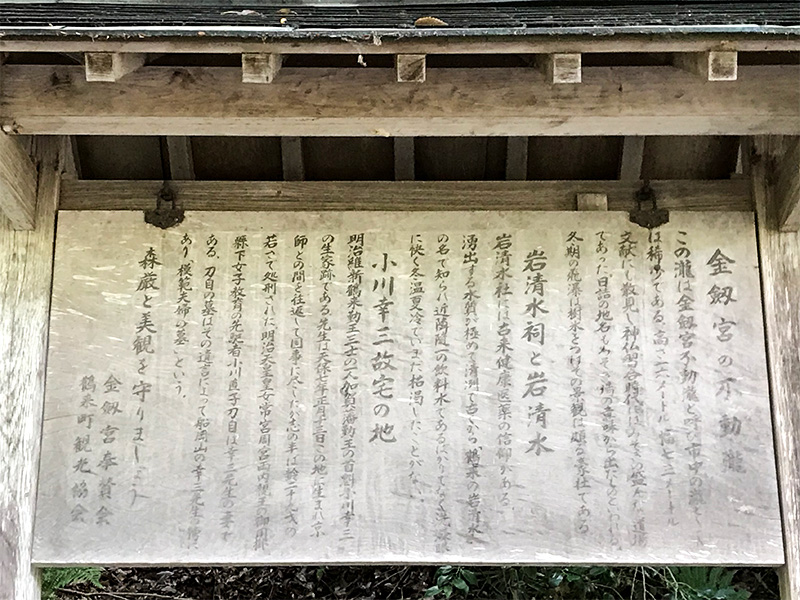 金劔宮の不動滝
この滝は金劔宮不動滝と呼び市中の滝として
は稀少である。高さ 六メートル 幅七.二メートル
文献にも散見し神仏習合時代には 盛んな道場
であった日詰の地名も の意味から出たものといわれる。
久期の飛瀑は樹木と その景観は頗る 社である
岩清水祠と岩清水
岩清水社には古来健康医薬の信仰がある。
湧出する水質が極めて清冽で古くから鶴来の岩清水
の名で知られ近隣 の飲料水であるばかりでなく洗 眼
に快く冬温夏冷でいまだ枯渇したことがない。
小川幸三故宅の地
明治維新鶴来勤王三士の一人加賀藩勤王の首勲小川幸三
の生家跡である。先生は天保七年正月十三日この地に生まれ京
師との間を往返して国事に尽くしたが志の半ば齢二十九才の
若さで処刑された。明治天皇皇女常宮周宮両内親王 御用掛
縣下女子教育の先駆者小川直子刀自は幸三先生の妻で
ある。刀自の墓はその遺言によって船岡山の幸三先生の傍に
あり「模範夫婦の墓」という。
森厳と美観を守りましょう
金劔宮奉賛会
鶴来町観光協会